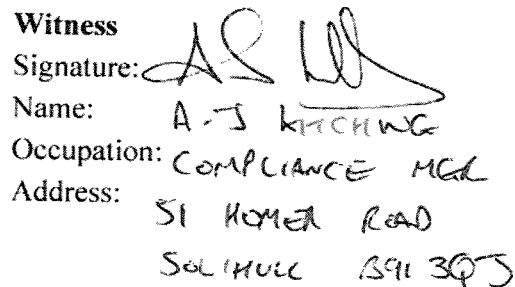 Witness
Signature:
Name: A-J KITCHING
Occupation: COMPLIANCE MGR
Address:
51 HOMER ROAD
SOLIHULL B91 3QJ